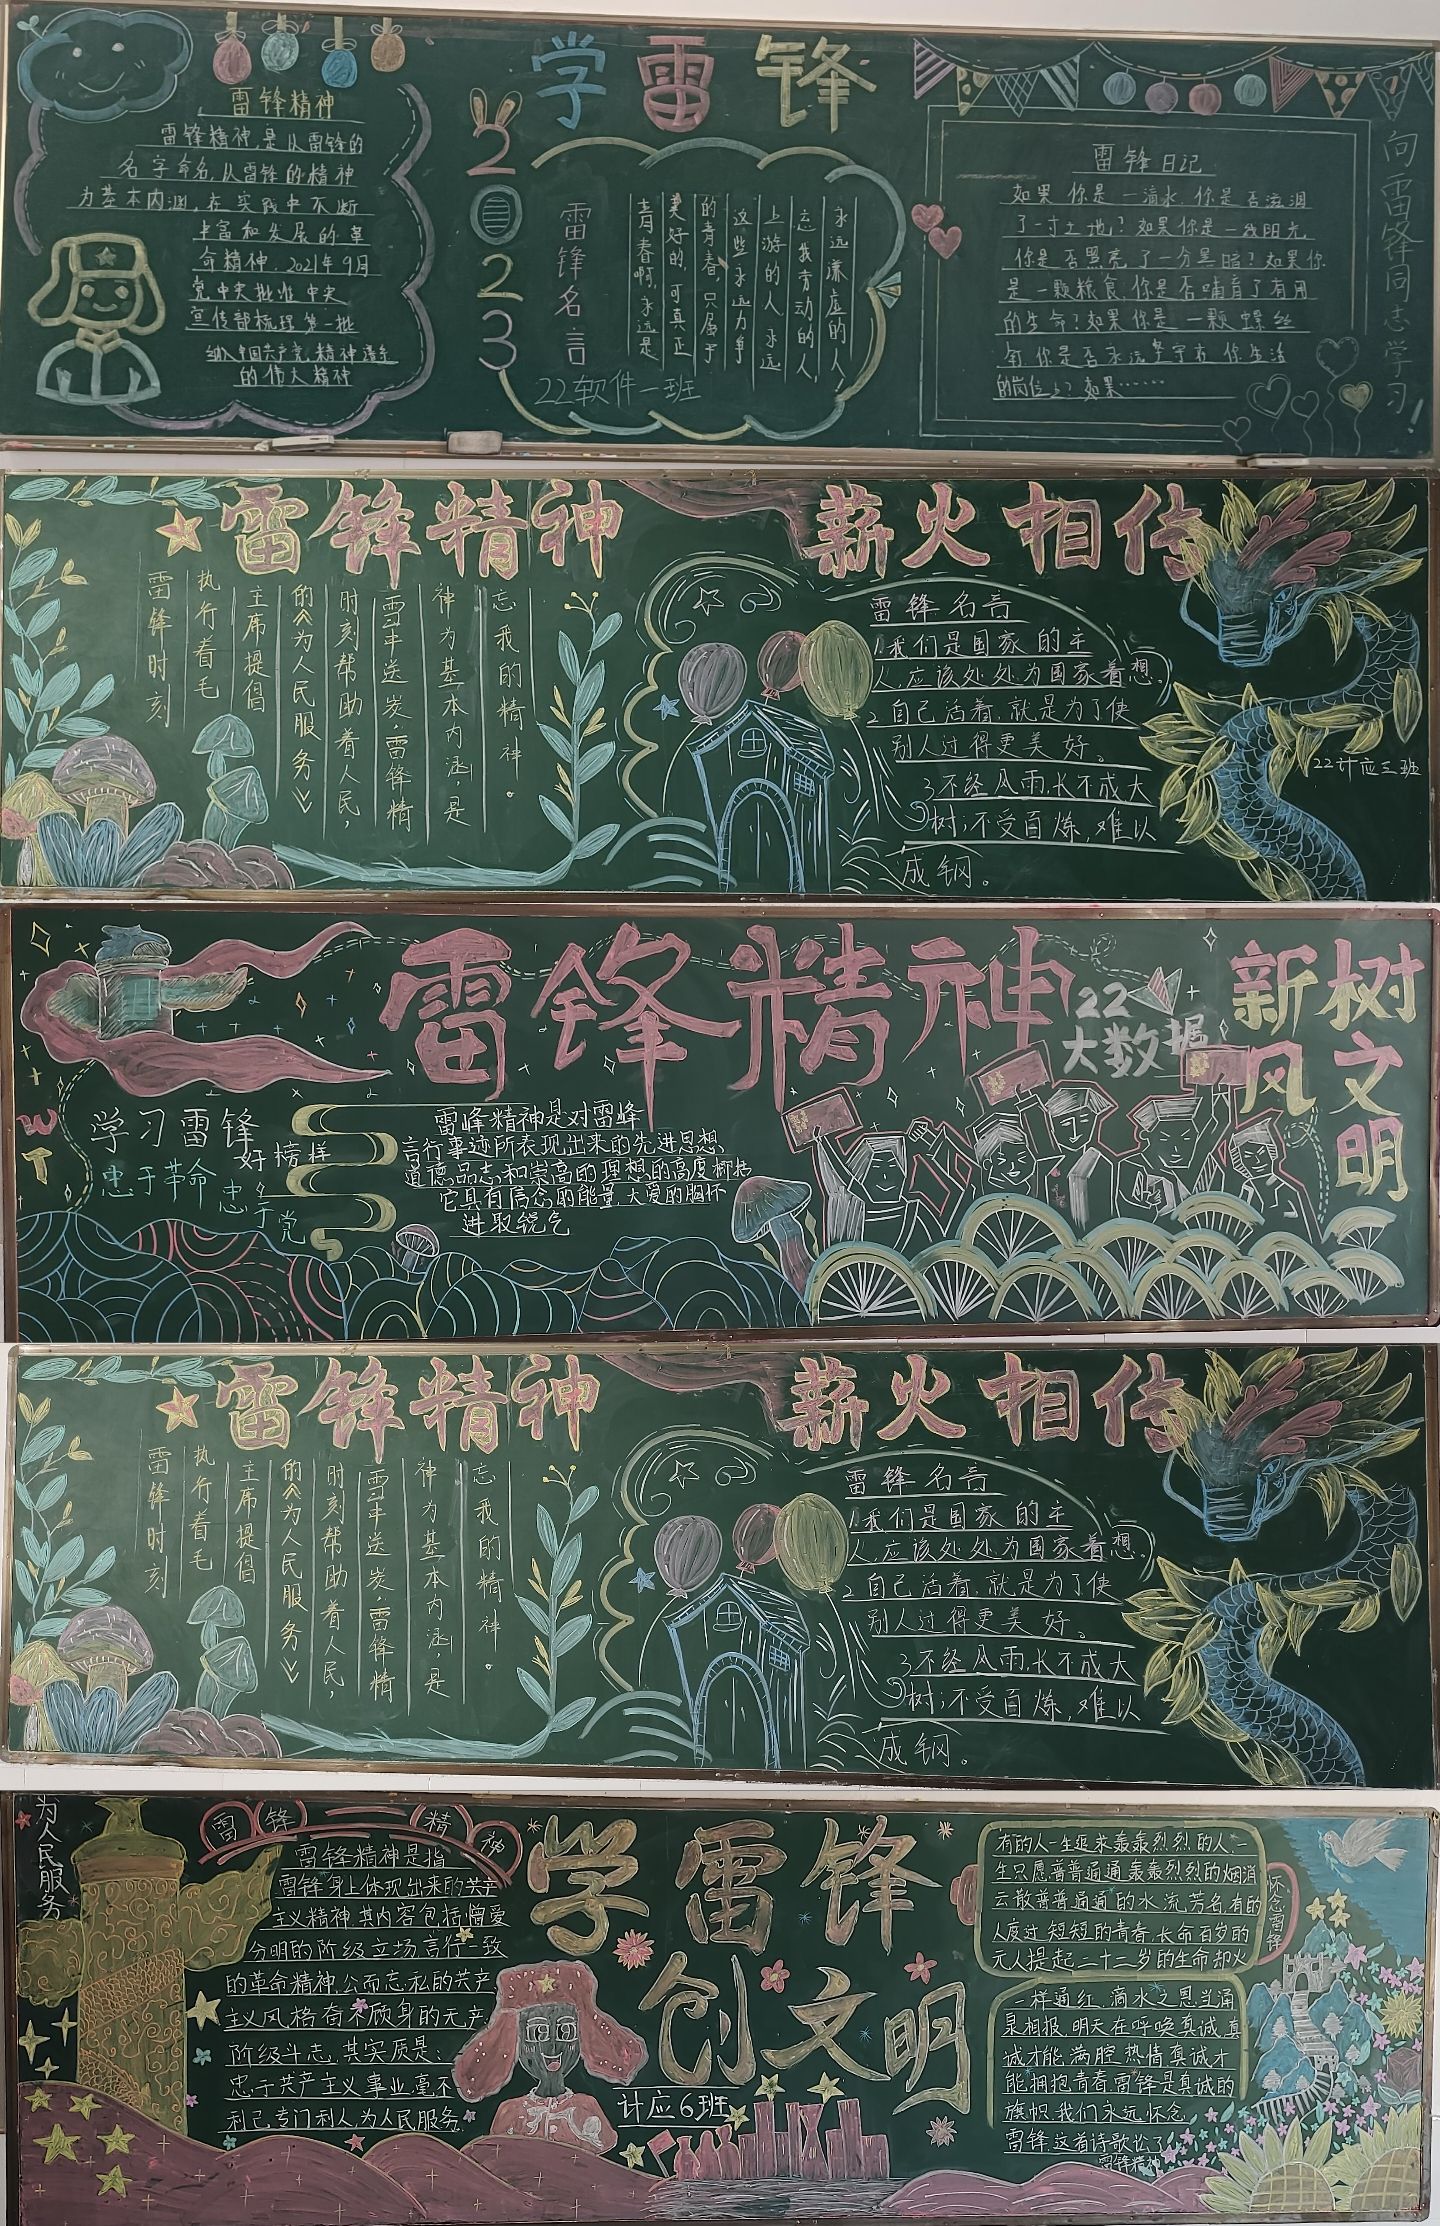 学雷锋
2023
雷锋精神
雷锋精神,是从雷锋的
名字命名,从雷锋的精神
为基本内涵,在实践中不断
丰富和发展的革
命精神,2021年9月
党中央批准中央
宣传部梳理第一批
纳入中国共产党人精神谱系
的伟大精神
雷锋名言
青春啊,永远是
美好的,可真正
的青春,只属于
这些永远力争
上游的人,永远
忘我劳动的人,
永远谦虚的人!
22软件一班
雷锋日记
如果你是一滴水,你是否滋润
了一寸土地?如果你是一线阳光
你是否照亮了一分黑暗?如果你
是一颗粮食,你是否哺育了有用
的生命?如果你是一颗螺丝
钉,你是否永远坚守在你生活
的岗位上?如果……
向雷锋同志学习!
雷锋精神 薪火相传
雷锋时刻
执行着毛
主席提倡
的《为人民服务》
时刻帮助着人民,
雪中送炭,雷锋精
神为基本内涵,是
忘我的精神。
雷锋名言
1我们是国家的主
人,应该处处为国家着想。
2自己活着,就是为了使
别人过得更美好。
3不经风雨,长不成大
树;不受百炼,难以
成钢。
22计应三班
雷锋精神
22
大数据
树文明
新风
学习雷锋
好榜样
忠于革命 忠于党
雷峰精神是对雷峰
言行事迹所表现出来的先进思想、
道德品志和崇高的理想的高度概括
它具有信念的能量,大爱的胸怀
进取锐气
雷锋精神 薪火相传
雷锋时刻
执行着毛
主席提倡
的《为人民服务》
时刻帮助着人民,
雪中送炭,雷锋精
神为基本内涵,是
忘我的精神。
雷锋名言
1我们是国家的主
人,应该处处为国家着想。
2自己活着,就是为了使
别人过得更美好。
3不经风雨,长不成大
树;不受百炼,难以
成钢。
为人民服务
雷锋精神
雷锋精神是指
雷锋身上体现出来的共产
主义精神,其内容包括,憎爱
分明的阶级立场,言行一致
的革命精神,公而忘私的共产
主义风格,奋不顾身的无产
阶级斗志,其实质是:
忠于共产主义事业,毫不
利己,专门利人,为人民服务
学雷锋
创文明
计应6班
有的人一生追求轰轰烈烈的人一
生只愿普普通通轰轰烈烈的烟消
云散普普通通的水流芳名,有的
人度过短短的青春,长命百岁的
无人提起二十二岁的生命却火
怀念雷锋
一样通红,滴水之恩,当涌
泉相报,明天在呼唤真诚,真
诚才能满腔热情真诚才
能拥抱青春,雷锋是真诚的
旗帜,我们永远怀念
雷锋这首诗歌讼了
雷锋精神